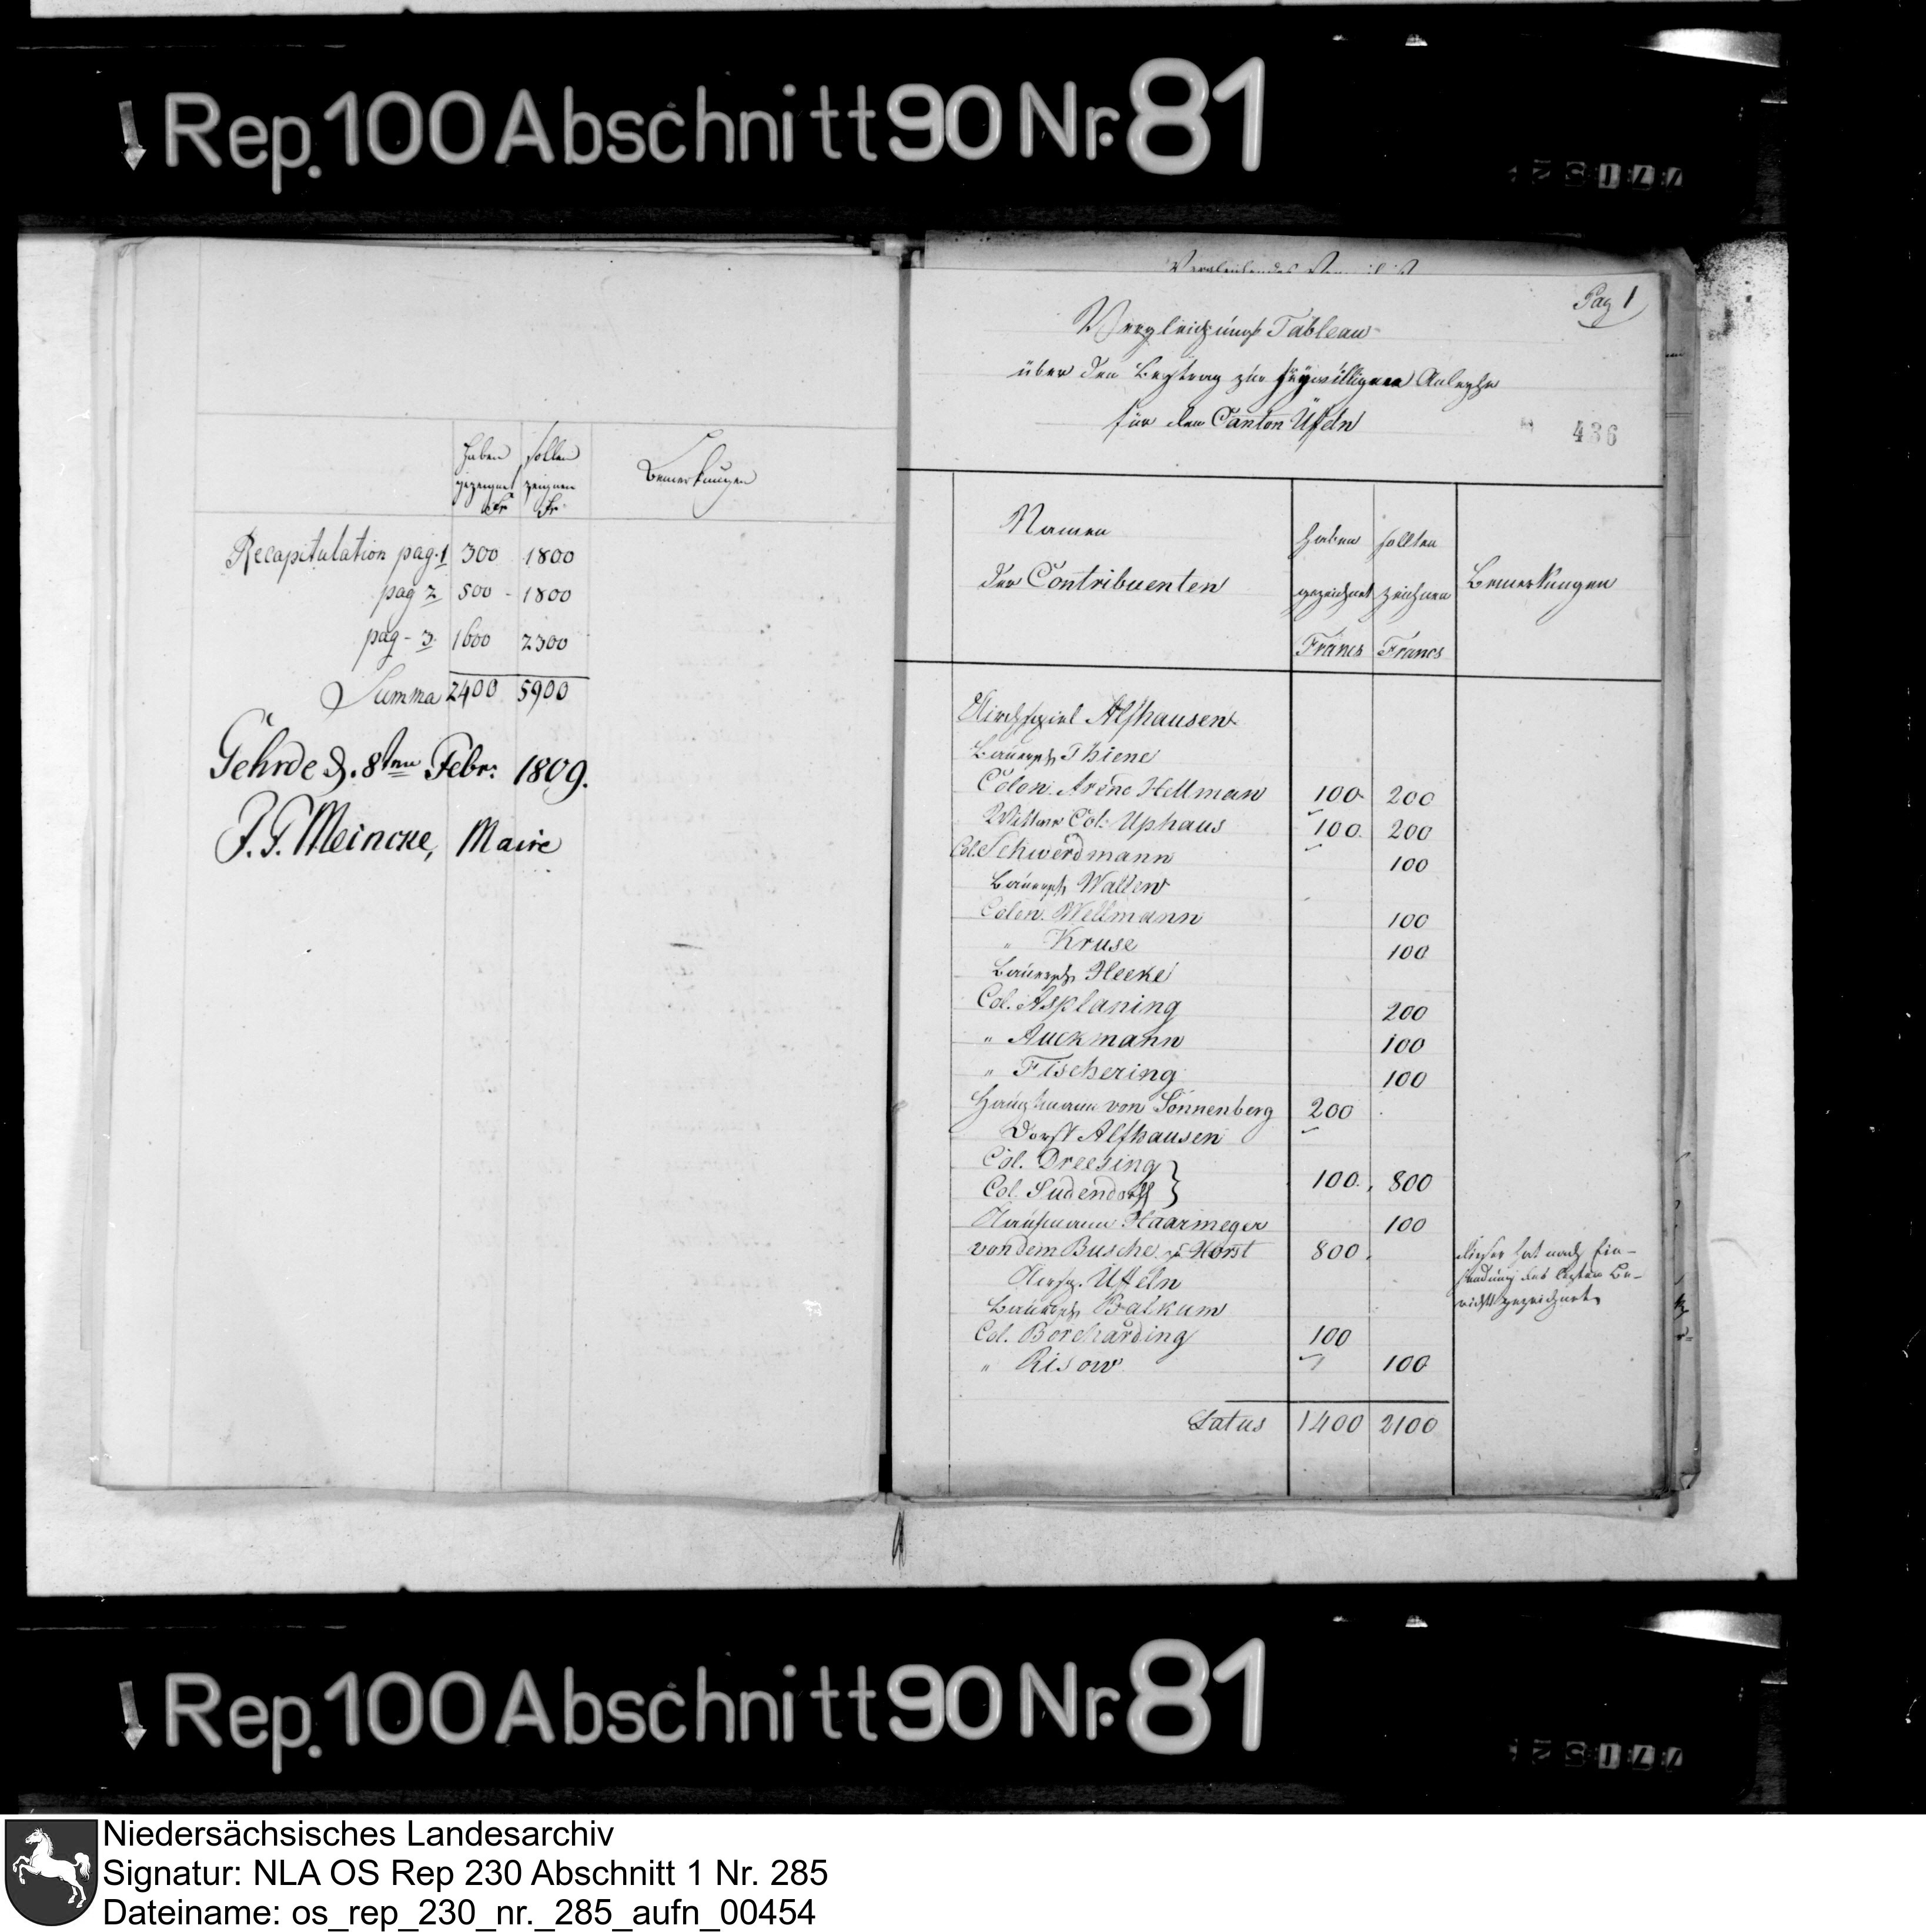 Rep. 100 Abschnitt 90 Nr. 81
haben sollen
gezeignet zeignen
Fr Fr
Bemerkungen
Recapitulation pag. 1 300 1800
pag 2 500 - 1800
pag - 3. 1600 2300
Summa 2400 5900
Gehrde d. 8ten Febr: 1809.
J. G. Meincke, Maire
Pag 1
Vergleichungs Tableau
über den Beytrag zur freywilligen Anleyhe
für den Canton Üffeln
436
Namen
der Contribuenten
haben
gezeichnet
Francs
sollten
zeichnen
Francs
Bemerkungen
Kirchspiel Alfhausen
Bauersch Thiene
Colon. Arend Hellman 100. 200
Wittwe Col. Uphaus 100. 200
Col. Schwerdmann 100
Bauersch Wallen
Colon. Wellmann 100
" Kruse 100
Bauersch Heeke
Col. Asplaning 200
" Auckmann 100
" Fischering 100
Hauptmann von Sonnenberg 200
Dorff Alfhausen
Col. Dreesing }
Col. Sudendorff } 100. 800
Kaufmann Haarmeyer 100
von dem Busche zu Horst 800.
dieser hat nach Ein-
sendung des letzten Be-
richts gezeichnet
Kirsp. Üffeln
Bauersch Balkum
Col. Borcharding 100
" Risow 100
Latus 1400 2100
Rep. 100 Abschnitt 90 Nr. 81
Niedersächsisches Landesarchiv
Signatur: NLA OS Rep 230 Abschnitt 1 Nr. 285
Dateiname: os_rep_230_nr._285_aufn_00454